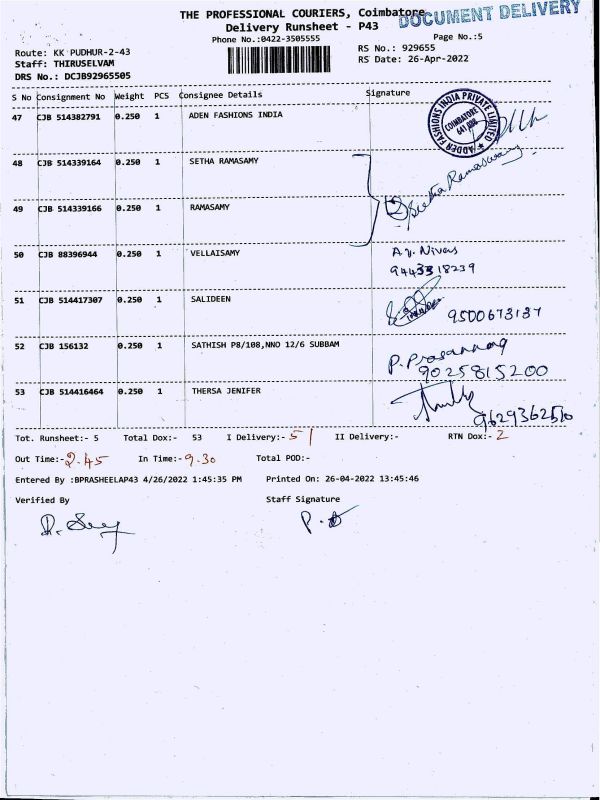 THE PROFESSIONAL COURIERS, Coimbatore
DOCUMENT DELIVERY
Delivery Runsheet - P43
Phone No.:0422-3505555
Page No.:5
Route: KK PUDHUR-2-43
RS No.: 929655
Staff: THIRUSELVAM
RS Date: 26-Apr-2022
DRS No.: DCJB92965505
S No Consignment No Weight PCS Consignee Details Signature
47 CJB 514382791 0.250 1 ADEN FASHIONS INDIA
FASHIONS INDIA PRIVATE LIMITED
COIMBATORE
48 CJB 514339164 0.250 1 SETHA RAMASAMY
Seetha Ramaswamy
49 CJB 514339166 0.250 1 RAMASAMY
50 CJB 88396944 0.250 1 VELLAISAMY
A.J. Nivas
9443318239
51 CJB 514417307 0.250 1 SALIDEEN
9500673137
52 CJB 156132 0.250 1 SATHISH P8/108,NNO 12/6 SUBBAM
P. Prasannag
9025815200
53 CJB 514416464 0.250 1 THERSA JENIFER
9629362510
Tot. Runsheet:- 5 Total Dox:- 53 I Delivery:- 51 II Delivery:- RTN Dox:- 2
Out Time:- 2.45 In Time:- 9.30 Total POD:-
Entered By :BPRASHEELAP43 4/26/2022 1:45:35 PM Printed On: 26-04-2022 13:45:46
Verified By Staff Signature